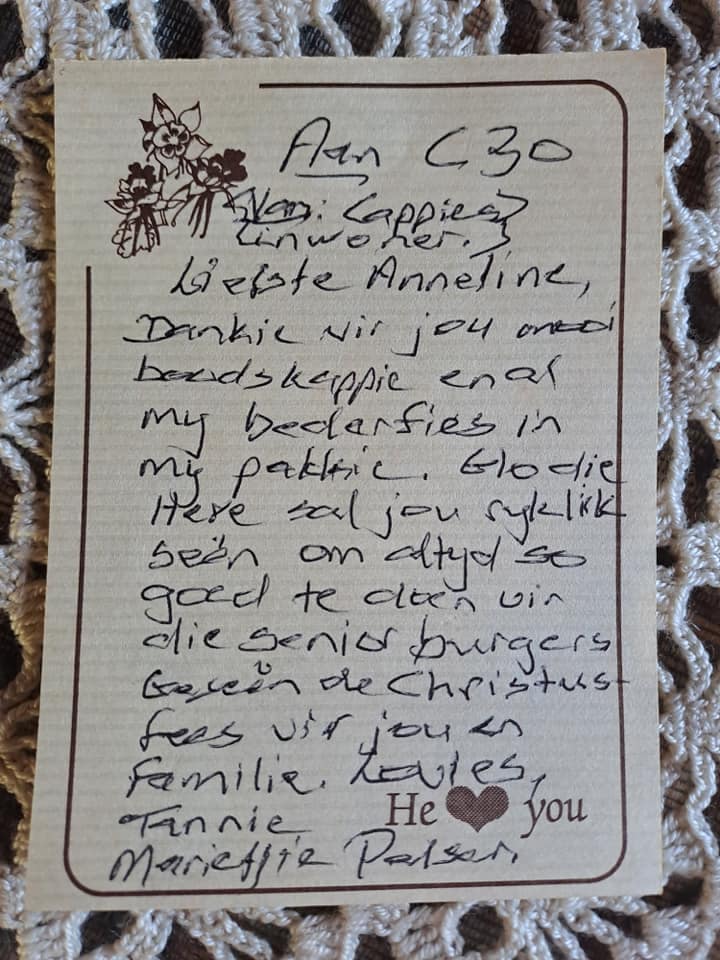 Aan C30
Van: Kappies
inwoner.
Liefste Anneline,
Dankie vir jou mooi
boodskappie en al
my bederfies in
my pakkie. Glo die
Here sal jou ryklik
seën om altyd so
goed te doen vir
die senior burgers
Geseënde Christus-
fees vir jou en
familie. Lovies,
Tannie
He ♥ you
Marietjie Pelser.